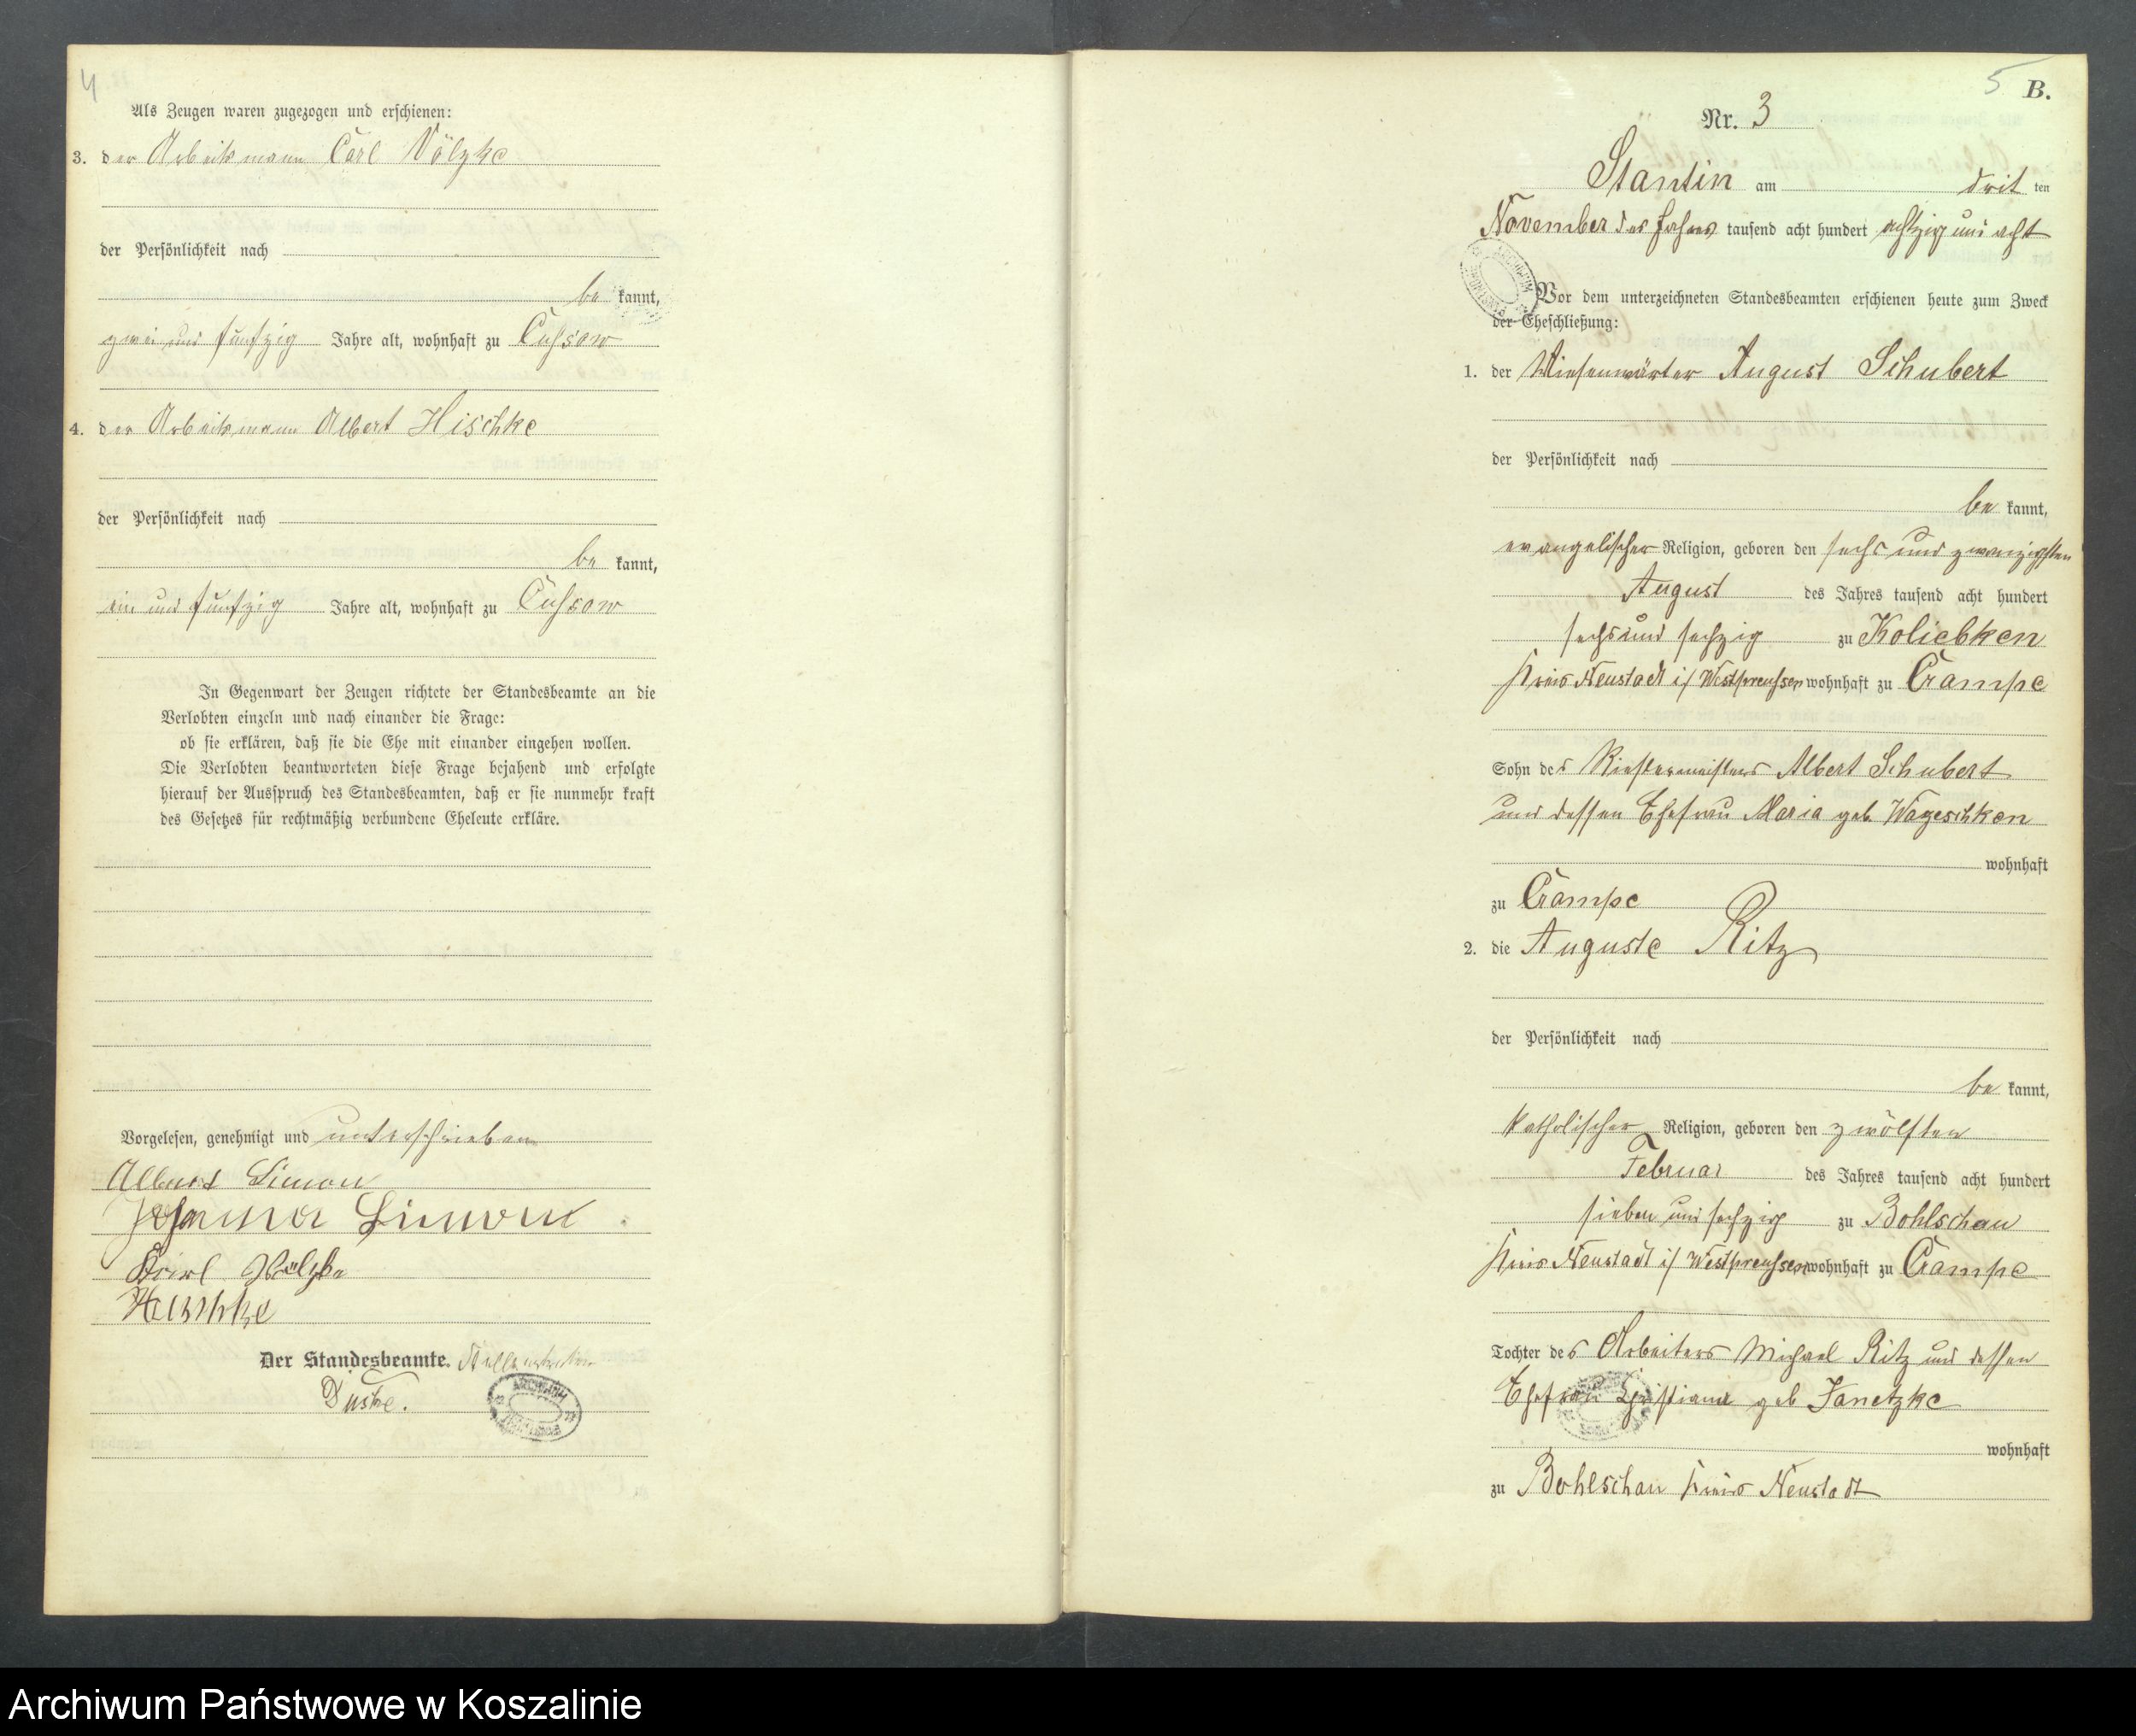 4
Als Zeugen waren zugezogen und erschienen:
3. der Arbeitsmann Carl Völzke
der Persönlichkeit nach
be kannt,
zwei und fünfzig Jahre alt, wohnhaft zu Cussow
4. der Arbeitsmann Albert Hischke
der Persönlichkeit nach
be kannt,
ein und fünfzig Jahre alt, wohnhaft zu Cussow
In Gegenwart der Zeugen richtete der Standesbeamte an die
Verlobten einzeln und nach einander die Frage:
ob sie erklären, daß sie die Ehe mit einander eingehen wollen.
Die Verlobten beantworteten diese Frage bejahend und erfolgte
hierauf der Ausspruch des Standesbeamten, daß er sie nunmehr kraft
des Gesetzes für rechtmäßig verbundene Eheleute erkläre.
Vorgelesen, genehmigt und unterschrieben
Albert Simon
Johanna Simon
Karl Völzke
Der Standesbeamte.
ARCHIWUM
5 B.
Nr. 3
Stantin am drit ten
November des Jahres tausend acht hundert achtzig und acht
ARCHIWUM
Vor dem unterzeichneten Standesbeamten erschienen heute zum Zweck
der Eheschließung:
1. der Wiesenwärter August Schubert
der Persönlichkeit nach
be kannt,
evangelischer Religion, geboren den sechs und zwanzigsten
August des Jahres tausend acht hundert
sechs und sechzig zu Koliebken
Kreis Neustadt i/ Westpreussen wohnhaft zu Crampe
Sohn des Albert Schubert
und dessen Ehefrau Maria geb. Wageschken
wohnhaft
zu Crampe
2. die Auguste Ritz
der Persönlichkeit nach
be kannt,
katholischer Religion, geboren den zwölften
Februar des Jahres tausend acht hundert
sieben und sechzig zu Bohlschau
Kreis Neustadt i/ Westpreussen wohnhaft zu Crampe
Tochter des Arbeiters Michael Ritz und dessen
Ehefrau Christiana geb Janetzke
wohnhaft
zu Bohlschau Kreis Neustadt
Archiwum Państwowe w Koszalinie